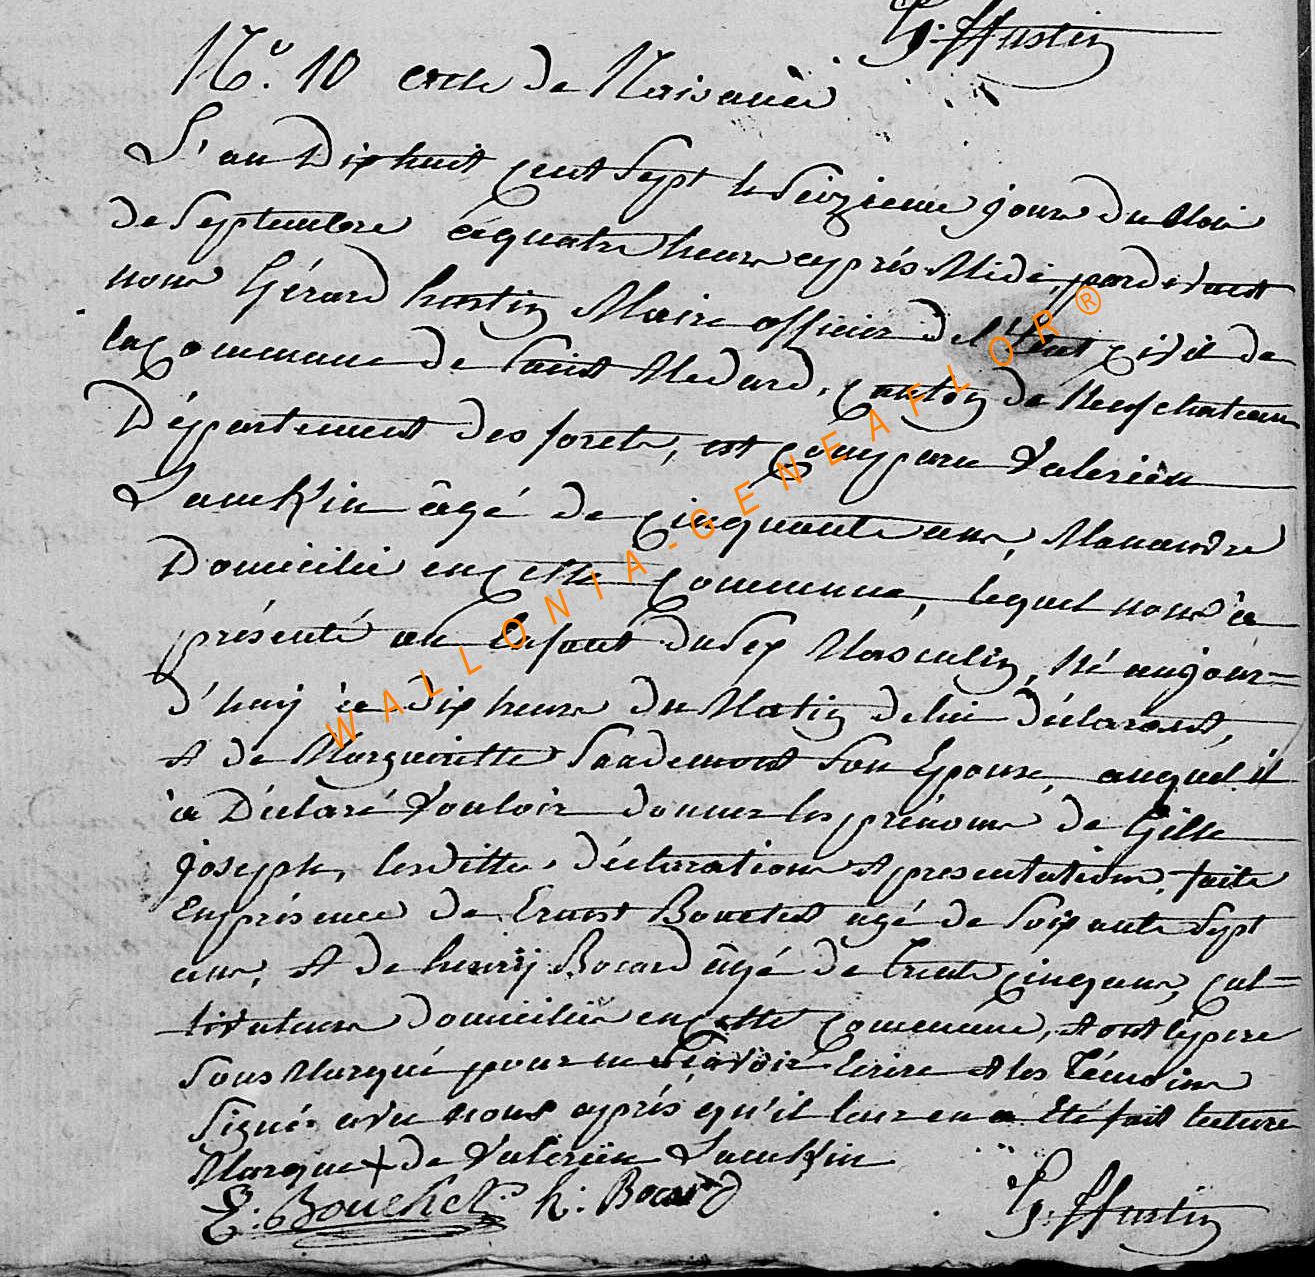 G. Hustin
N.º 10 acte de Naisance
L'an Dix huit cent Sept le Seizieme jour du Moi
de Septembre à quatre heure après Midi, pardevant
nous Gérard hustin Maire officier de l'état çivil de
la Commune de Saint Medard, canton de Neufchateau
Département des forets, est comparu Valerien
Lamkin âgé de cinquante ans, Manandre
Domicilié en cette commune, lequel nous à
présenté un Enfant du Sex Masculin, Né aujour=
d'huy à dix heure du Matin de lui déclarant,
et de Margueritte Sandemont Son Epouse, auquel il
à Déclaré Vouloir donner les prénoms de Gille
joseph, lesditte déclaration et presentation, faite
En présence de Ernest Bouchet agé de Soixante Sept
ans, et de henrÿ Bocard âgé de trente cinq ans, cul=
tivateurs domicilié en cette commune, et ont le pere
Sous Marqué pour ne Sçavoir Ecrire et les Témoins
Signé avec nous après qu'il leur en a été fait lecture
Marque + de Valerien Lamkin
E. Bouchet h: Bocard G. Hustin
WALLONIA-GENEAFLOR®